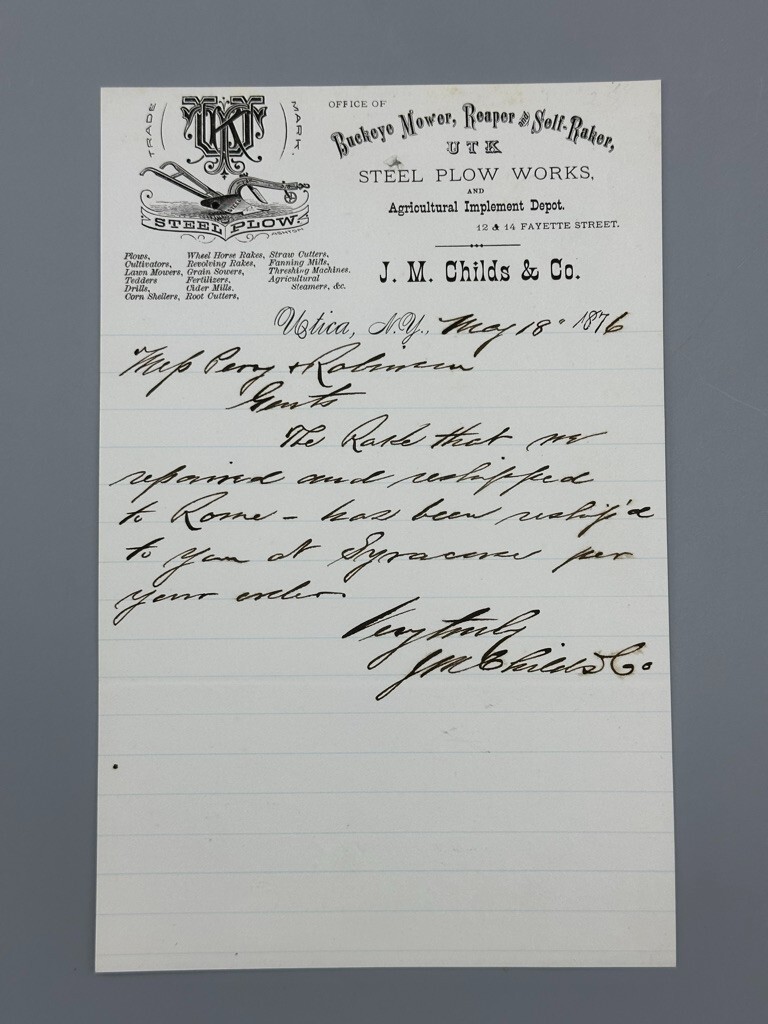 TRADE MARK.
UTK
STEEL PLOW.
OFFICE OF
Buckeye Mower, Reaper and Self-Raker,
UTK
STEEL PLOW WORKS,
AND
Agricultural Implement Depot.
12 & 14 FAYETTE STREET.
J. M. Childs & Co.
Plows,
Cultivators,
Lawn Mowers,
Tedders
Drills,
Corn Shellers,
Wheel Horse Rakes,
Revolving Rakes,
Grain Sowers,
Fertilizers,
Cider Mills.
Root Cutters,
Straw Cutters,
Fanning Mills,
Threshing Machines.
Agricultural
Steamers, &c.
Utica, N.Y., May 18" 1876
Mess Perry & Robinson
Gents
The Rake that we
repaired and reshipped
to Rome - has been reship'd
to you at Syracuse per
your order
Very truly
J M Childs & Co